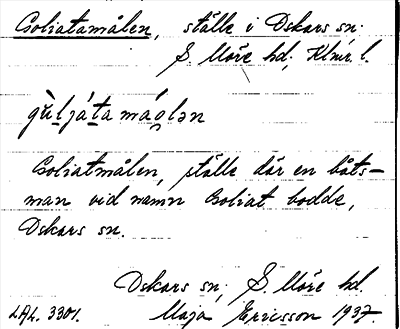 Goliatamålen, ställe i Oskars sn.
S. Möre hd., Klmr. l.
gùljáta má̊lən
Goliatmålen, ställe där en båts-
man vid namn Goliat bodde,
Oskars sn.
Oskars sn, S Möre hd.
L.A.L. 3301. Maja Ericsson 1937.